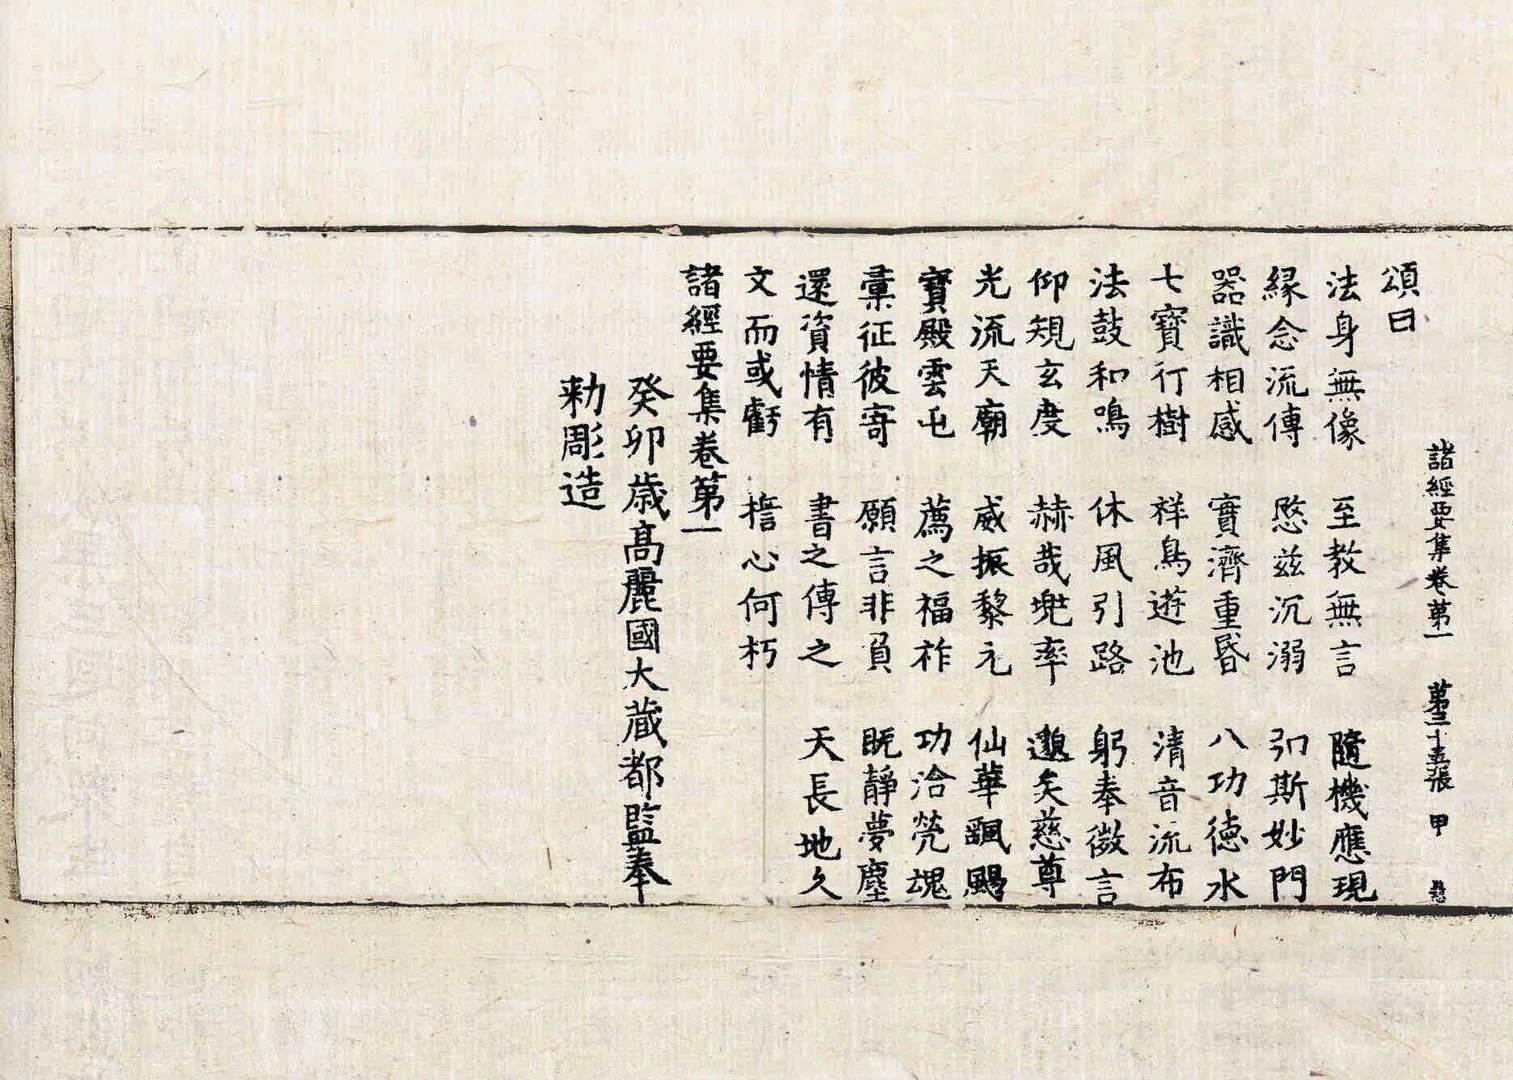 諸經要集卷第一　第三十五張　甲
頌曰
法身無像　至教無言　隨機應現
縁念流傳　愍兹沉溺　引斯妙門
器識相感　實濟重昏　八功德水
七寶行樹　祥鳥遊池　清音流布
法鼓和鳴　休風引路　躬奉微言
仰䂓玄度　赫哉兠率　邈矣慈尊
光流天廟　威振黎元　仙華飄颺
寶殿雲屯　薦之福祚　功洽煢魂
彙征彼寄　願言非負　既靜夢塵
還資情有　書之傳之　天長地久
文而或虧　擔心何朽
諸經要集卷第一
癸卯歲高麗國大藏都監奉
勑彫造